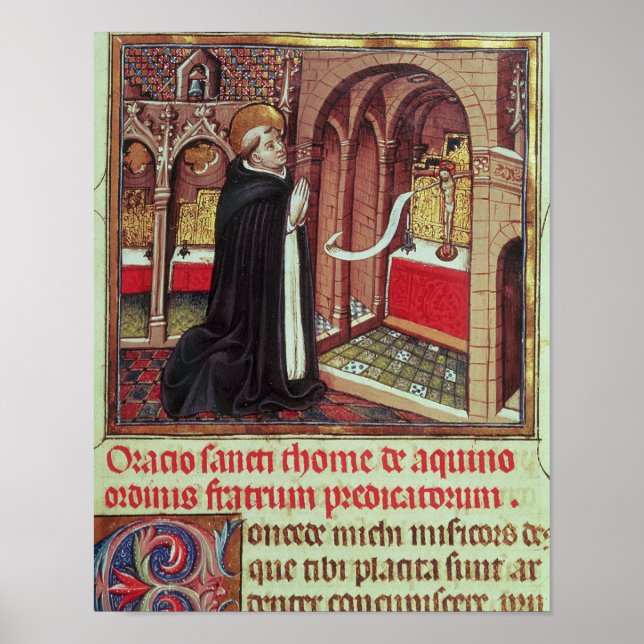 Oracio sancti thome de aquino
ordinis fratrum predicatorum .
Concede michi misicors
que tibi placita sunt ar
denter concupiscere